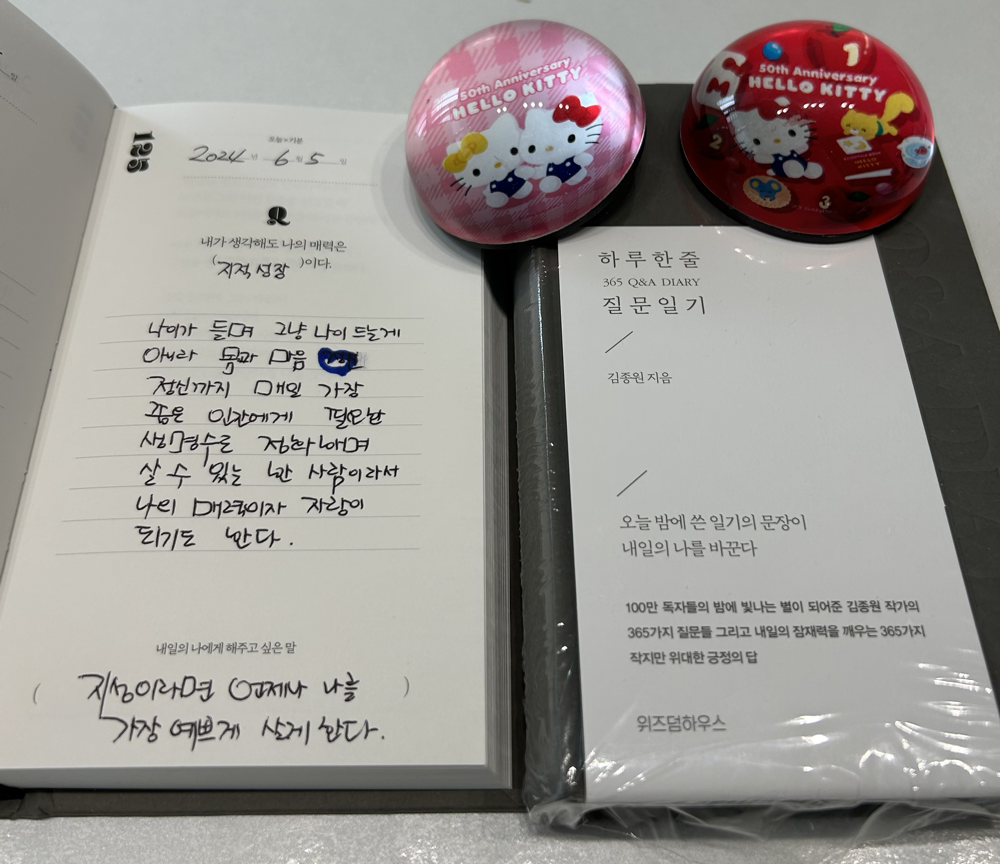 125
오늘의 기분
2024년 6월 5일
Q
내가 생각해도 나의 매력은
(지적 성장)이다.
나이가 들며 그냥 나이 드는게
아니라 몸과 마음
정신까지 매일 가장
좋은 인간에게 필요한
생명수로 정화해며
살 수 있는 한 사람이라서
나의 매력이자 자랑이
되기도 한다.
내일의 나에게 해주고 싶은 말
(지성이라면 언제나 나를
가장 예쁘게 살게 한다.)
50th Anniversary
HELLO KITTY
50th Anniversary
HELLO KITTY
1
2
3
하루 한 줄
365 Q&A DIARY
질문 일기
김종원 지음
오늘 밤에 쓴 일기의 문장이
내일의 나를 바꾼다
100만 독자들의 밤에 빛나는 별이 되어준 김종원 작가의
365가지 질문들 그리고 내일의 잠재력을 깨우는 365가지
작지만 위대한 긍정의 답
위즈덤하우스